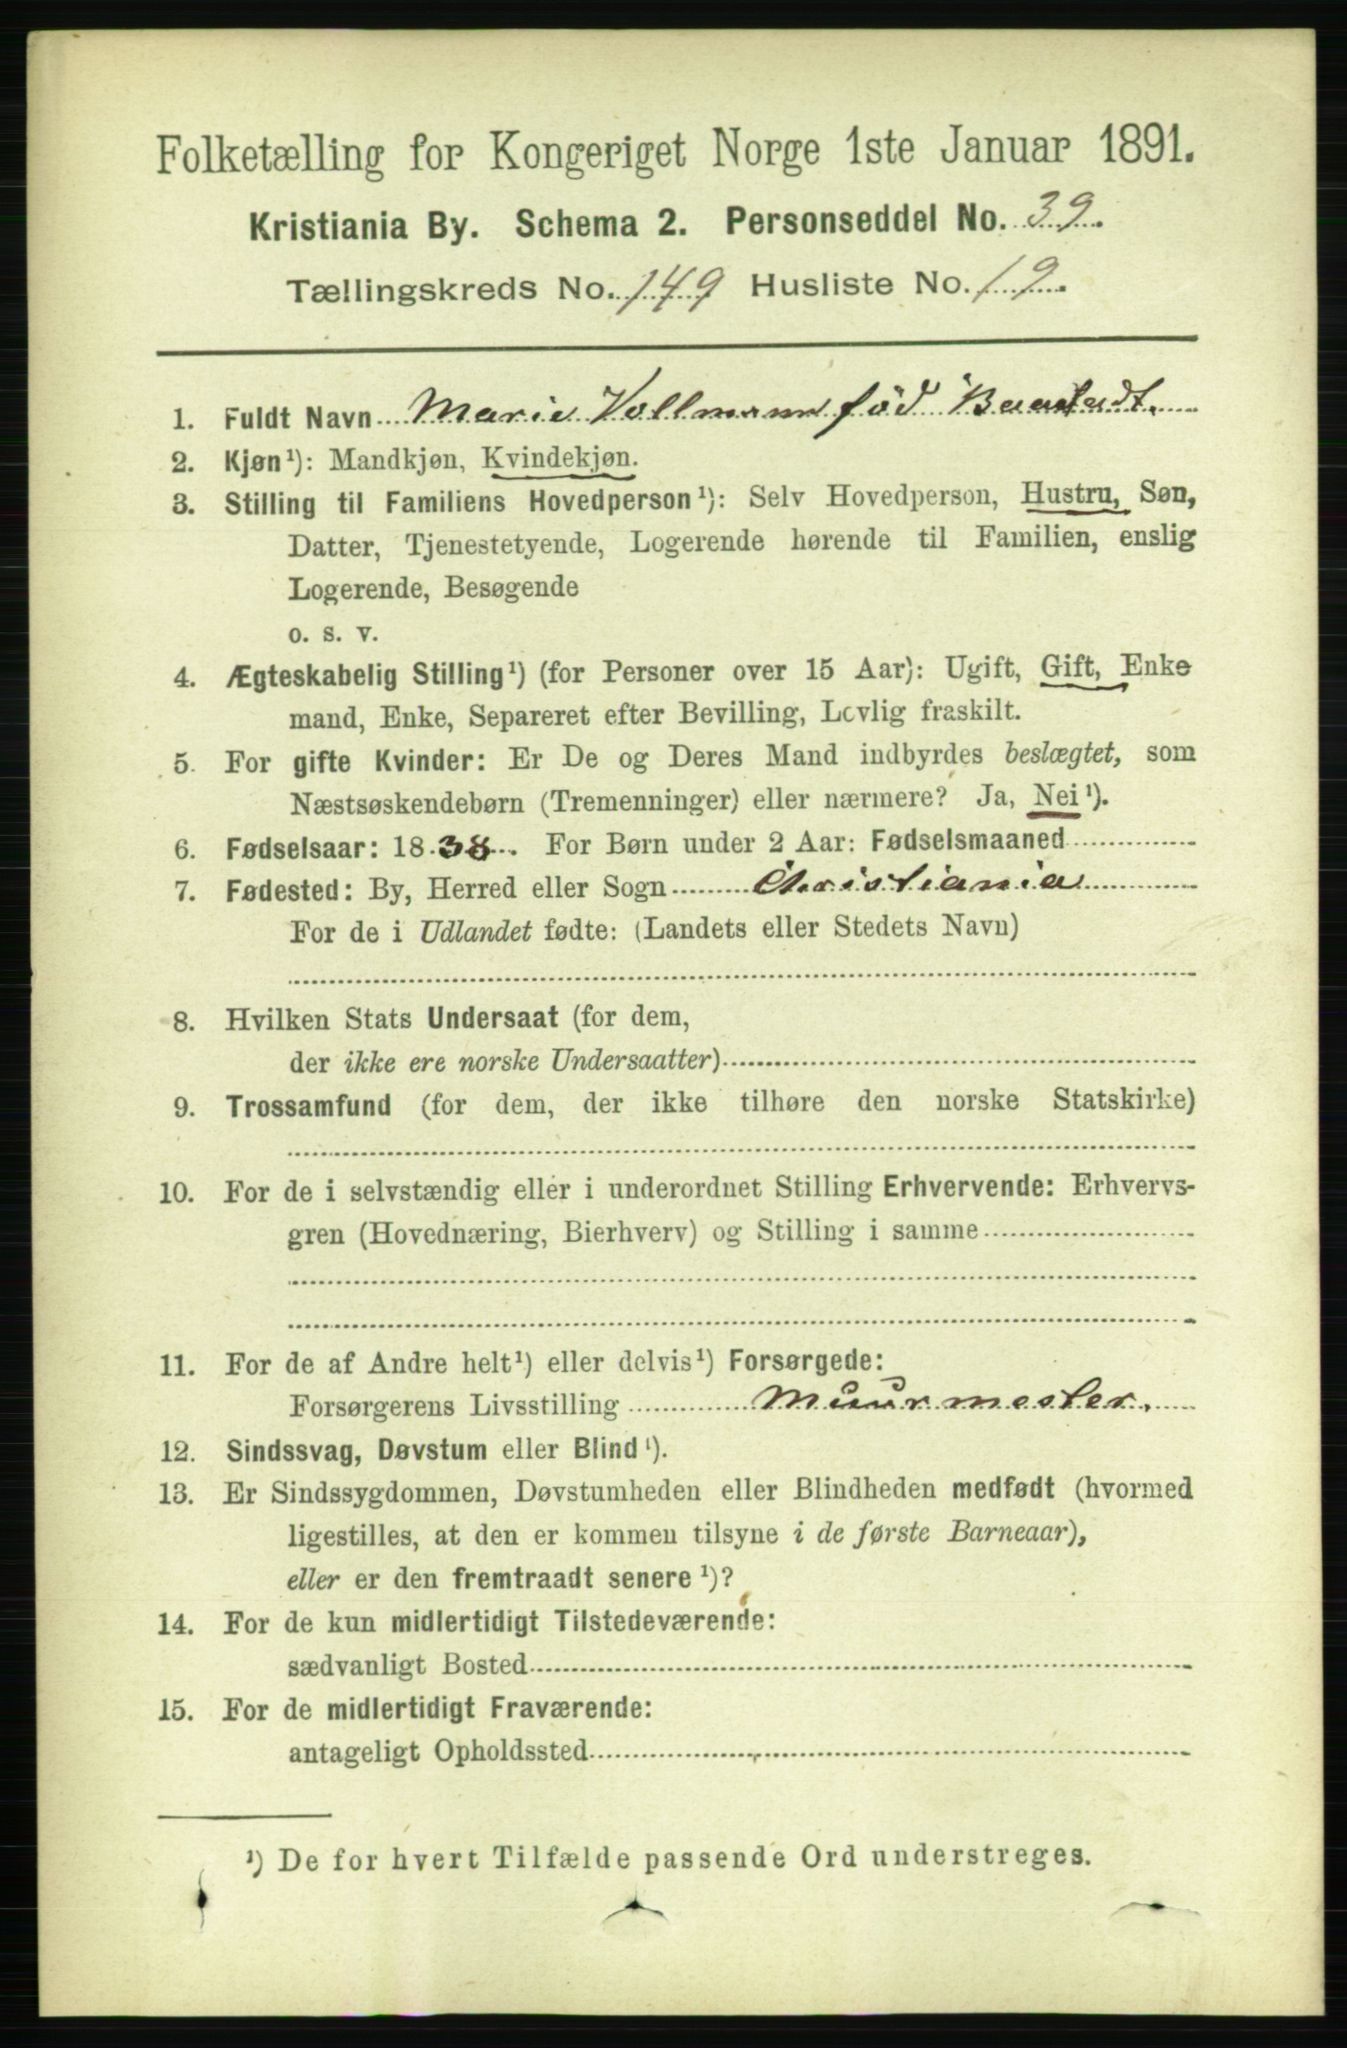 Folketælling for Kongeriget Norge 1ste Januar 1891.
Kristiania By. Schema 2. Personseddel No. 39.
Tællingskreds No. 149 Husliste No. 19.
1. Fuldt Navn Marie Vollmann fød
2. Kjøn¹): Mandkjøn, Kvindekjøn.
3. Stilling til Familiens Hovedperson¹): Selv Hovedperson, Hustru, Søn,
Datter, Tjenestetyende, Logerende hørende til Familien, enslig
Logerende, Besøgende
o. s. v.
4. Ægteskabelig Stilling¹) (for Personer over 15 Aar): Ugift, Gift, Enke
mand, Enke, Separeret efter Bevilling, Lovlig fraskilt.
5. For gifte Kvinder: Er De og Deres Mand indbyrdes beslægtet, som
Næstsøskendebørn (Tremenninger) eller nærmere? Ja, Nei¹).
6. Fødselsaar: 1838. For Børn under 2 Aar: Fødselsmaaned
7. Fødested: By, Herred eller Sogn Christiania
For de i Udlandet fødte: (Landets eller Stedets Navn)
8. Hvilken Stats Undersaat (for dem,
der ikke ere norske Undersaatter)
9. Trossamfund (for dem, der ikke tilhøre den norske Statskirke)
10. For de i selvstændig eller i underordnet Stilling Erhvervende: Erhvervs-
gren (Hovednæring, Bierhverv) og Stilling i samme
11. For de af Andre helt¹) eller delvis¹) Forsørgede:
Forsørgerens Livsstilling Muurmester.
12. Sindssvag, Døvstum eller Blind¹).
13. Er Sindssygdommen, Døvstumheden eller Blindheden medfødt (hvormed
ligestilles, at den er kommen tilsyne i de første Barneaar),
eller er den fremtraadt senere¹)?
14. For de kun midlertidigt Tilstedeværende:
sædvanligt Bosted
15. For de midlertidigt Fraværende:
antageligt Opholdssted
¹) De for hvert Tilfælde passende Ord understreges.